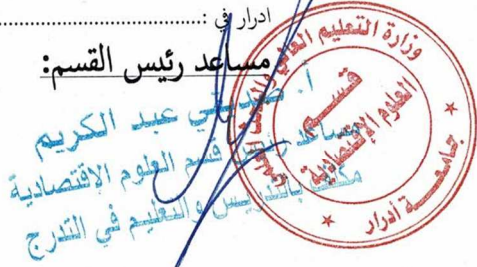 ادرار في :..............................
مساعد رئيس القسم:
أ. عبد الكريم
مساعد رئيس قسم العلوم الإقتصادية
مكلف بالتدريس والتعليم في التدرج
وزارة التعليم العالي
قسم
العلوم الإقتصادية
جامعة أدرار